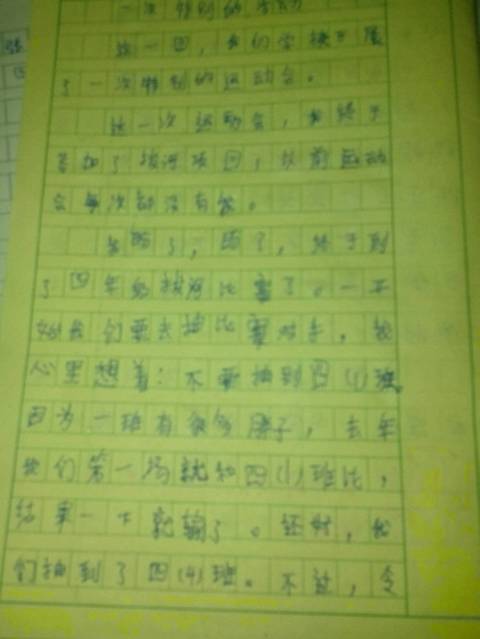 一次特别的运动
这一回，我们学校开展
了一次特别的运动会。
这一次运动会，我终于
参加了拔河项目，以前运动
会每次都没有我。
到了，终于到
了四年级拔河比赛了。一开
始我们要去抽比赛对手，我
心里想着：不要抽到四(1)班
因为一班有很多胖子，去年
我们第一场就和四(1)班比，
结果一下就输了。还好，我
们抽到了四(4)班。不过，令